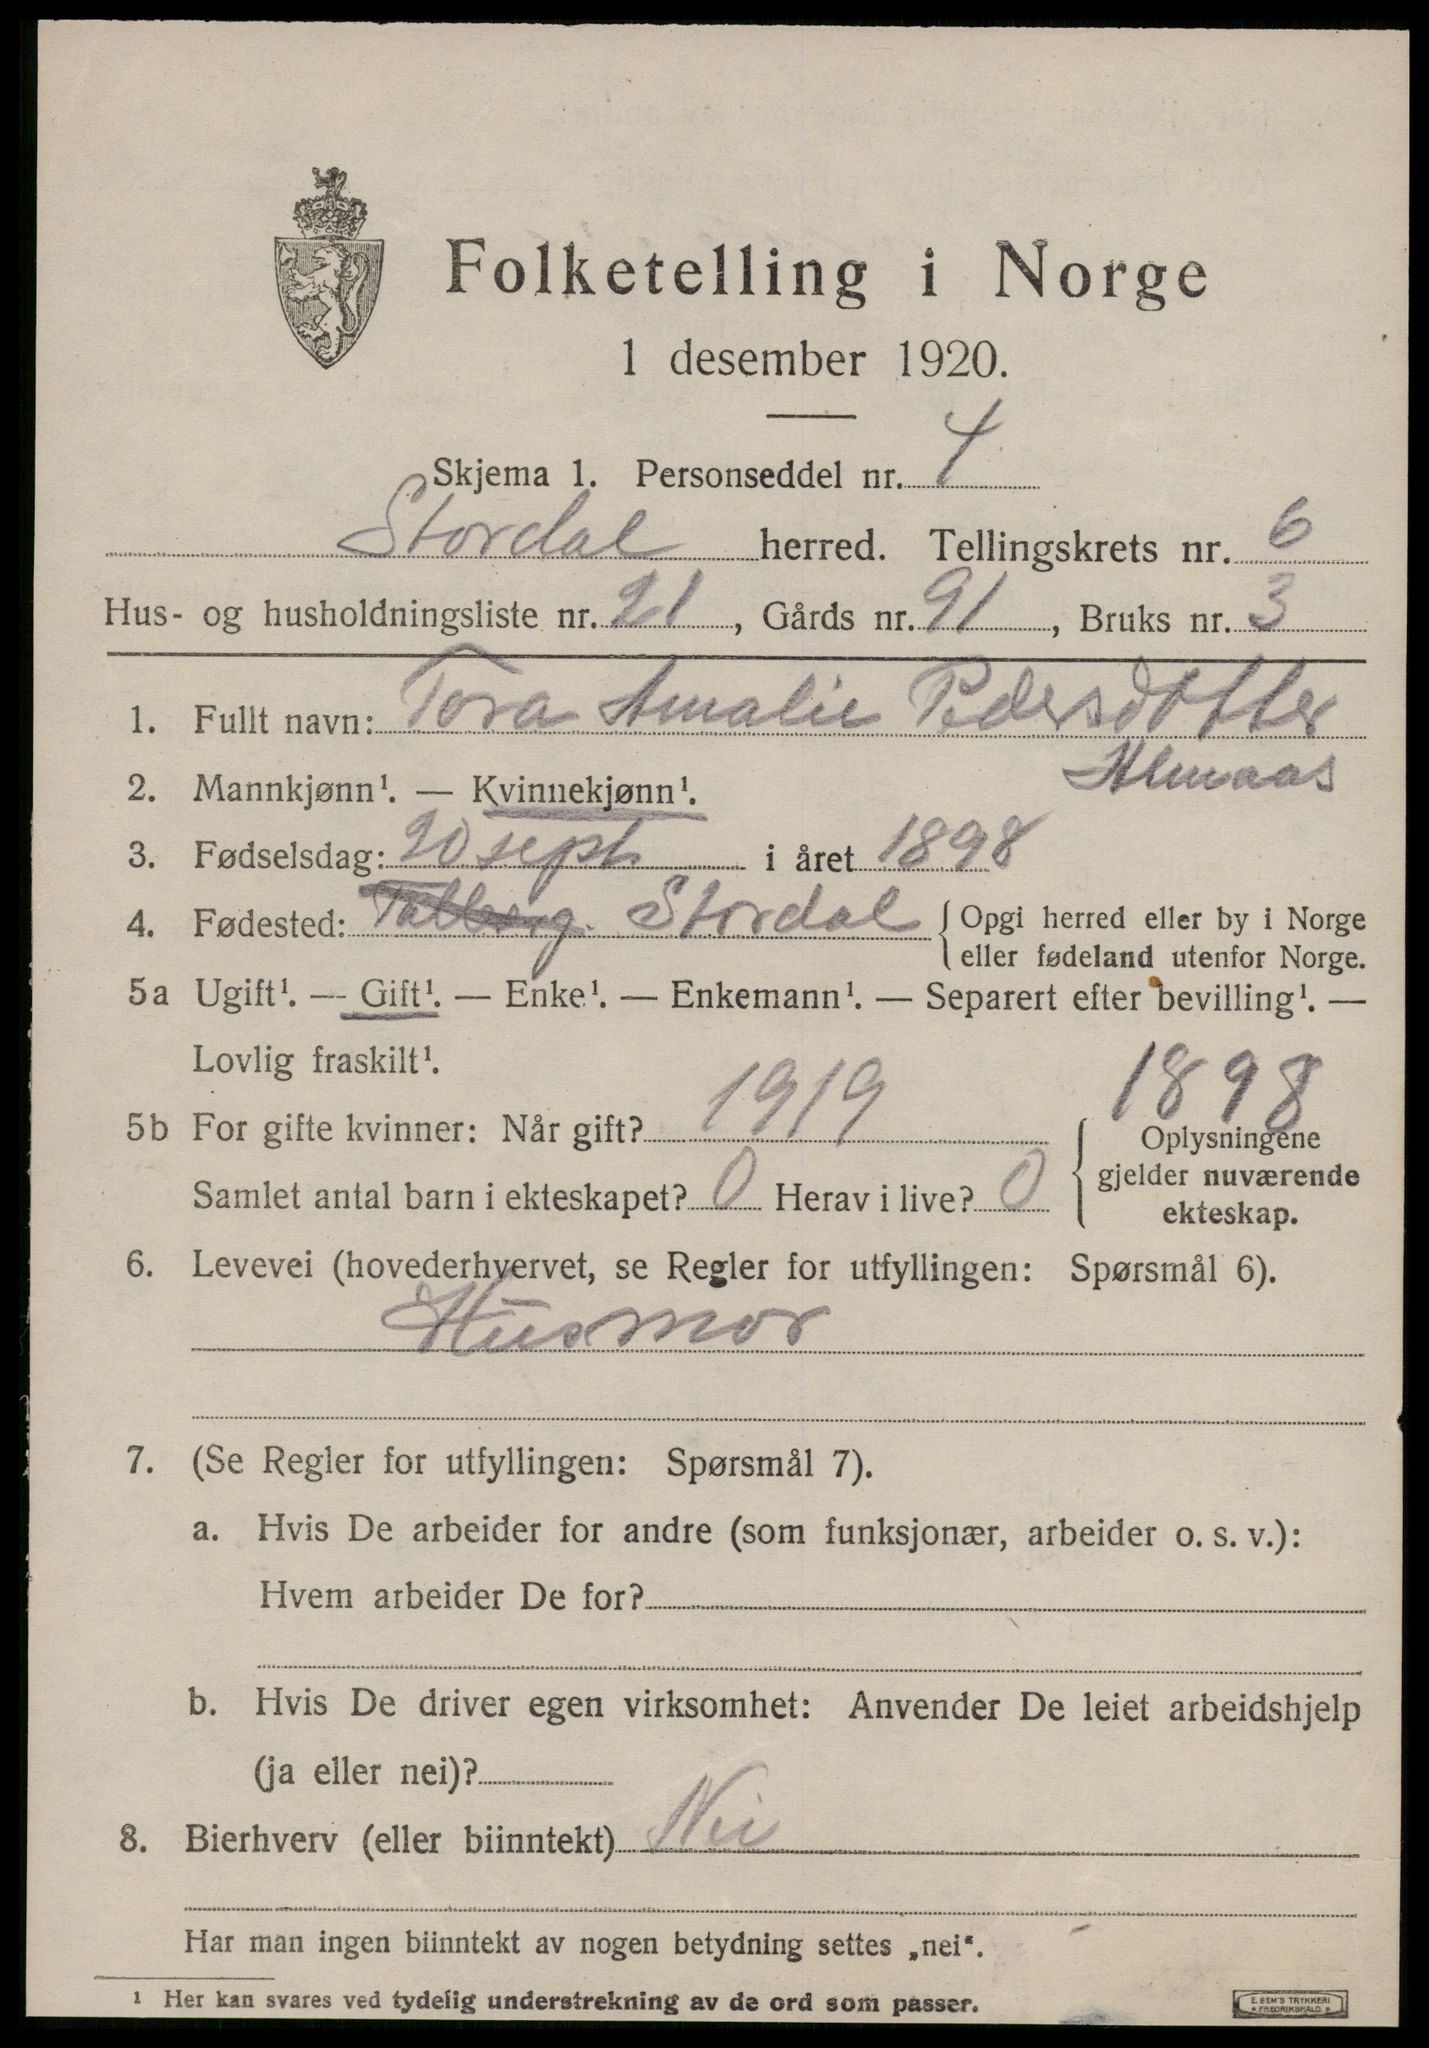 Folketelling i Norge
1 desember 1920.
Skjema 1. Personseddel nr. 4
Stordal herred. Tellingskrets nr. 6
Hus- og husholdningsliste nr. 21, Gårds nr. 91, Bruks nr. 3
1. Fullt navn: Tora Amalie Pedersdotter
Almaas
2. Mannkjønn¹. — Kvinnekjønn¹.
3. Fødselsdag: 20 sept i året 1898
4. Fødested: Stordal { Opgi herred eller by i Norge
eller fødeland utenfor Norge.
5a Ugift¹. — Gift¹. — Enke¹. — Enkemann¹. — Separert efter bevilling¹. —
Lovlig fraskilt¹.
1898
5b For gifte kvinner: Når gift? 1919
Samlet antal barn i ekteskapet? 0 Herav i live? 0
Oplysningene
gjelder nuværende
ekteskap.
6. Levevei (hovederhvervet, se Regler for utfyllingen: Spørsmål 6).
Husmor
7. (Se Regler for utfyllingen: Spørsmål 7).
a. Hvis De arbeider for andre (som funksjonær, arbeider o. s. v.):
Hvem arbeider De for?
b. Hvis De driver egen virksomhet: Anvender De leiet arbeidshjelp
(ja eller nei)?
8. Bierhverv (eller biinntekt) Nei
Har man ingen biinntekt av nogen betydning settes „nei“.
¹ Her kan svares ved tydelig understrekning av de ord som passer.
E. SEM'S TRYKKERI
FREDRIKSHALD